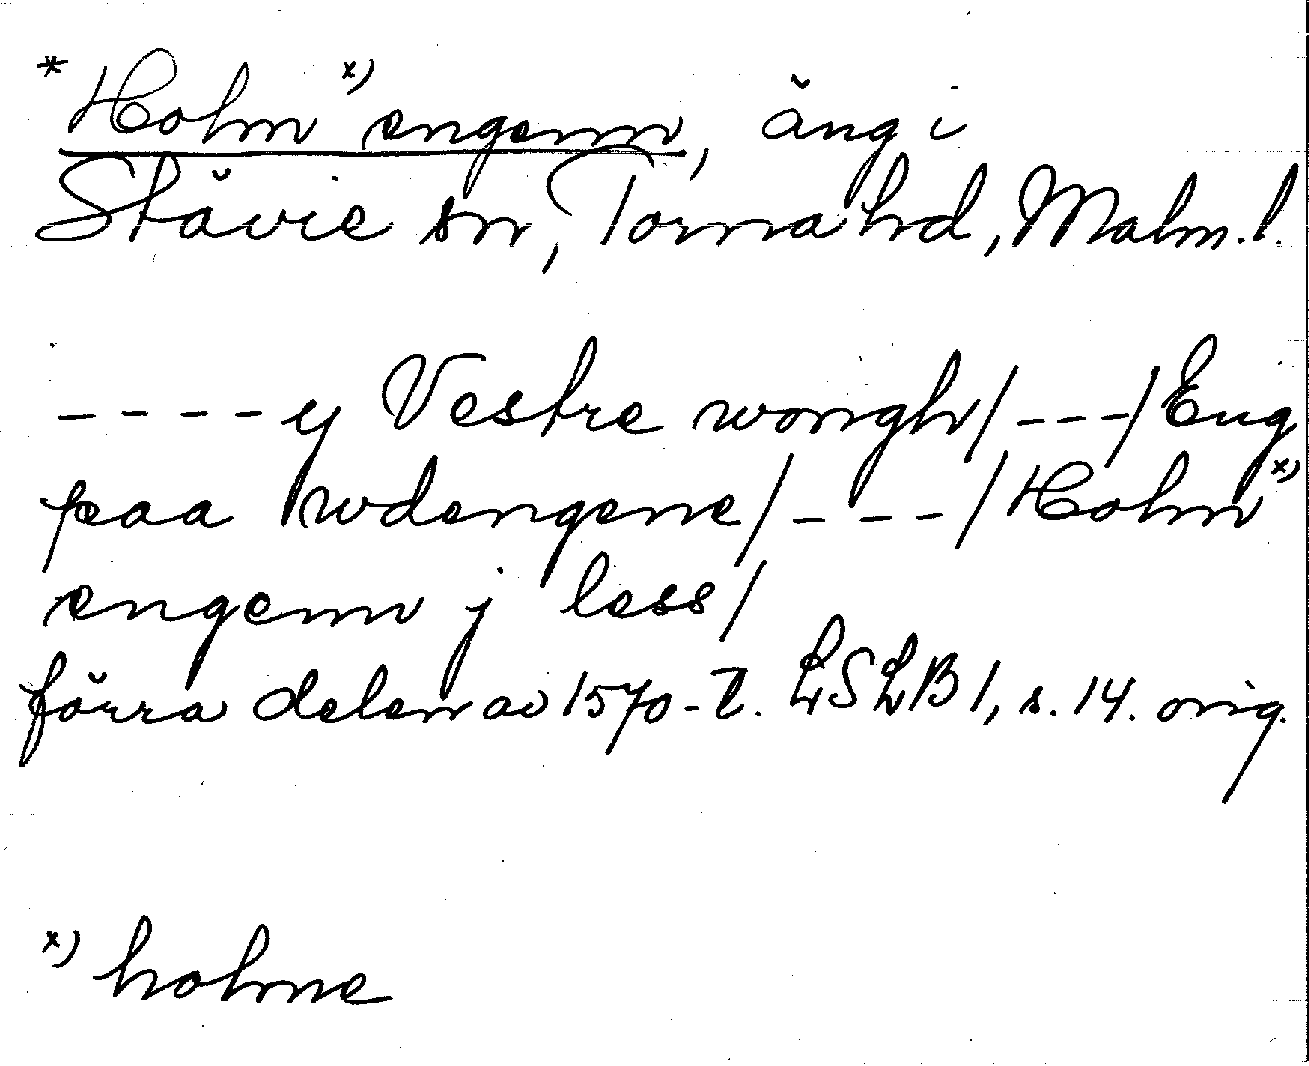 *Holm x) engenn, äng i
Stävie sn, Torna hd, Malm. l.
---- y Vestre wongh/ ---/ Eng
paa wdengene/ --- /Holm x)
engenn j less/
förra delen av 1570-t. LSLB 1, s. 14. orig.
x) holme